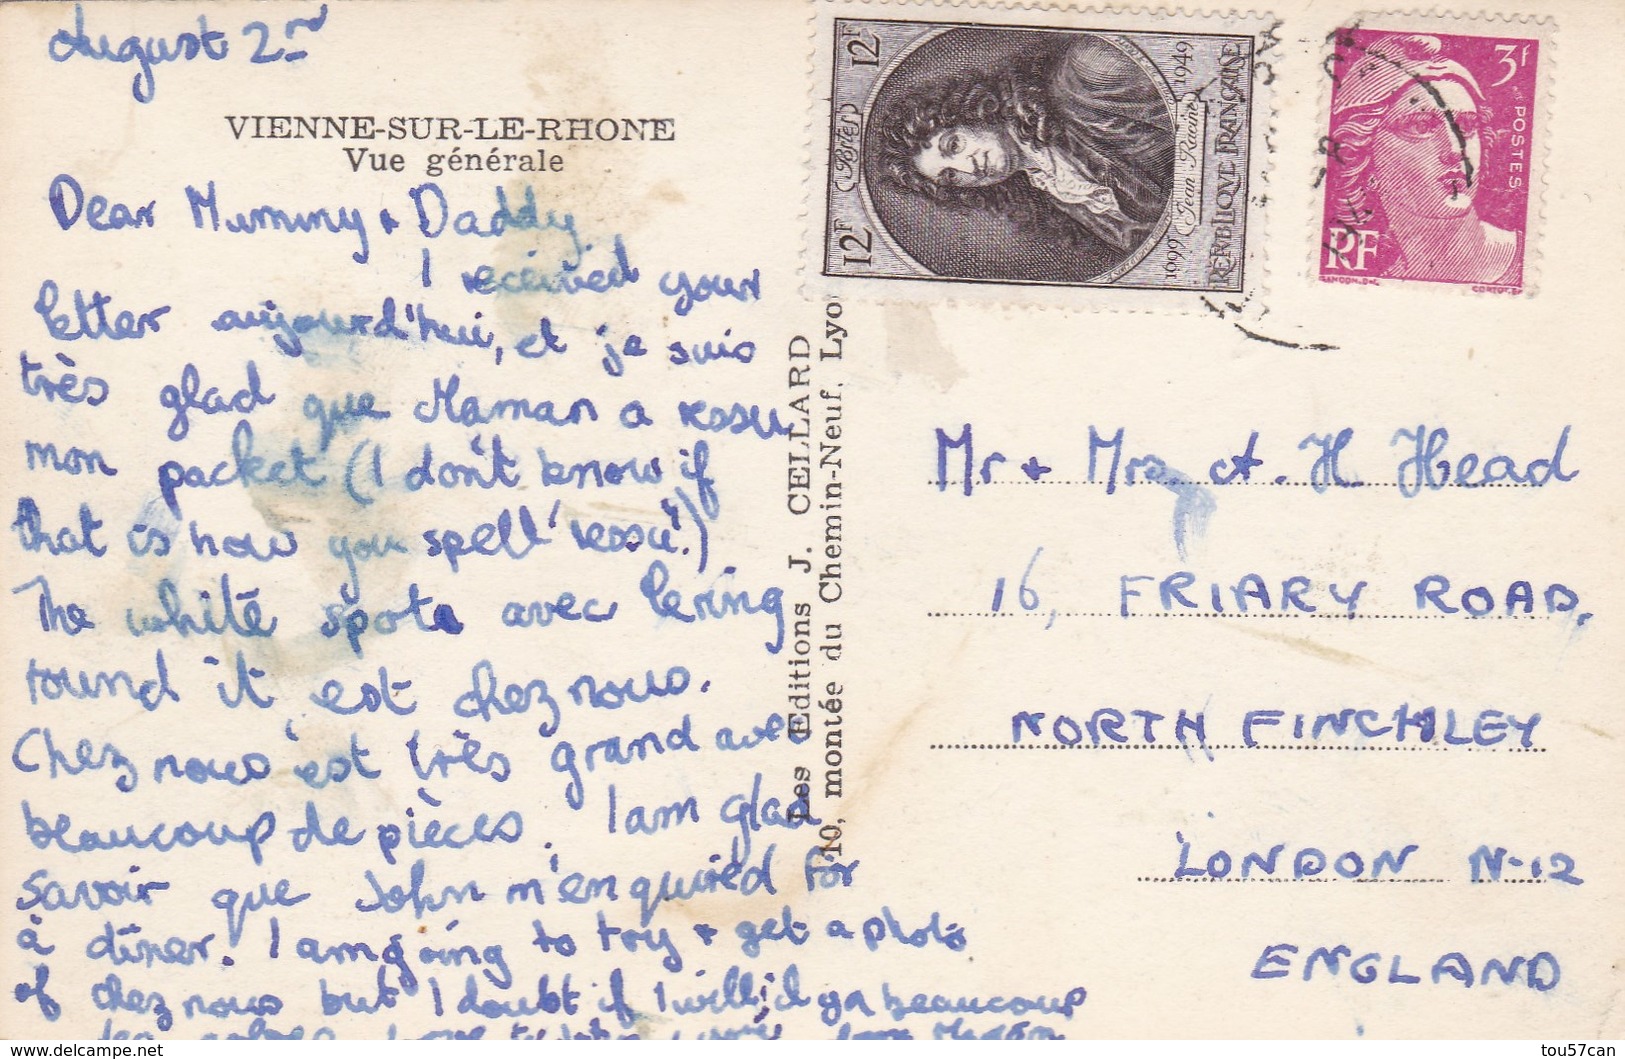 August 2nd
VIENNE-SUR-LE-RHONE
Vue générale
Dear Mummy + Daddy,
I received your
letter aujourd'hui, et je suis
très glad que Maman a ressu
mon packet (I don't know if
that is how you spell 'ressu'.)
The white spot avec le ring
round it, est chez nous.
Chez nous est très grand avec
beaucoup de pièces. I am glad
savoir que John m'enquired for
à dîner. I am going to try + get a photo
of chez nous but I doubt if I will, il y a beaucoup
Les Editions J. CELLARD
10, montée du Chemin-Neuf, Lyo
12F
12F
Postes
1699
Jean Racine
1949
REPUBLIQUE FRANÇAISE
3f
POSTES
RF
GANDON
CORTOT
Mr + Mrs. A. H. Head
16, FRIARY ROAD,
NORTH FINCHLEY
LONDON N-12
ENGLAND
tou57can